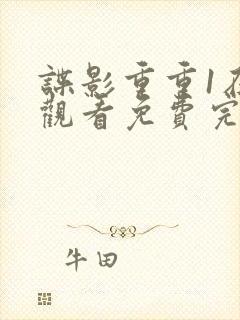 諜影重重1在
觀看免費完
牛田